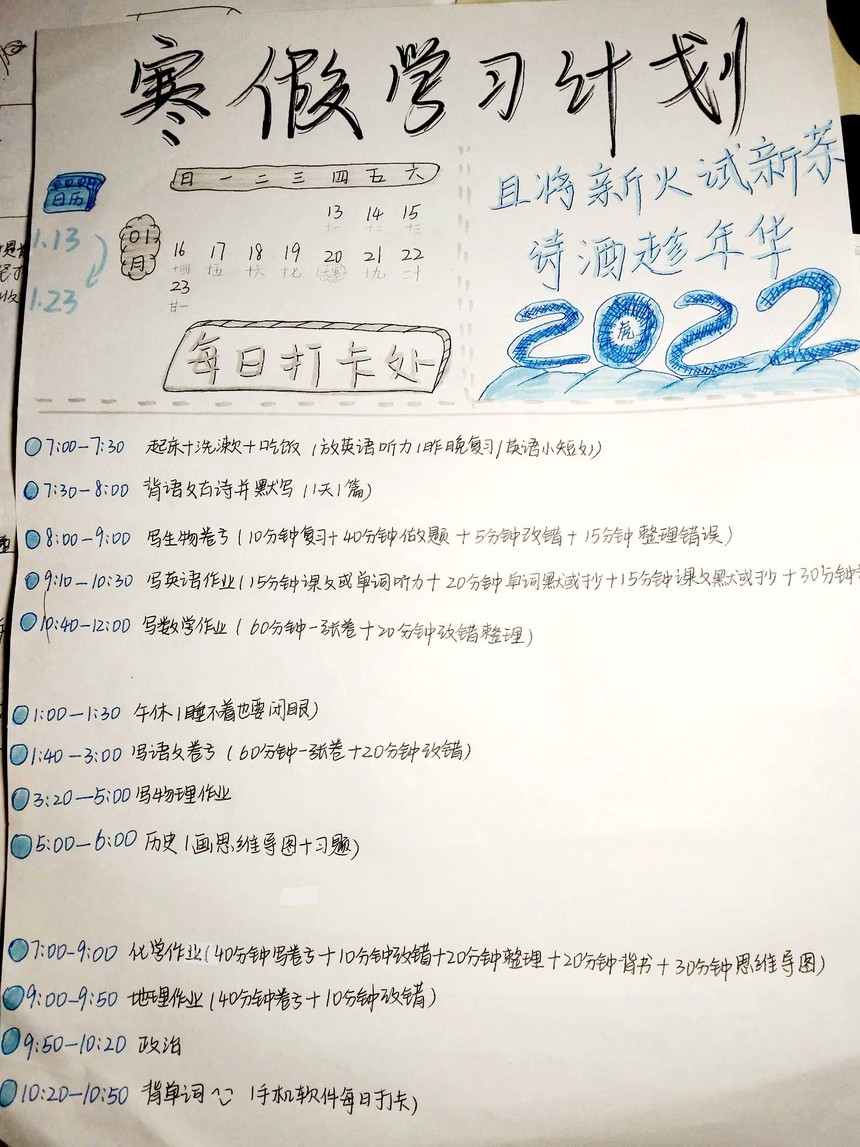 寒假学习计划
日历
1.13
1.23
01月
日 一 二 三 四 五 六
13 14 15
十一 十二 十三
16 17 18 19 20 21 22
十四 十五 十六 十七 大寒 十九 二十
23
廿一
每日打卡处
且将新火试新茶
诗酒趁年华
2022
虎
7:00-7:30 起床+洗漱+吃饭(放英语听力/昨晚复习/英语小短文)
7:30-8:00 背语文古诗并默写(1天1篇)
8:00-9:00 写生物卷子(10分钟复习+40分钟做题+5分钟改错+15分钟整理错误)
9:10-10:30 写英语作业(15分钟课文或单词听力+20分钟单词默或抄+15分钟课文默或抄+30分钟
10:40-12:00 写数学作业(60分钟一张卷+20分钟改错整理)
1:00-1:30 午休(睡不着也要闭眼)
1:40-3:00 写语文卷子(60分钟一张卷+20分钟改错)
3:20-5:00 写物理作业
5:00-6:00 历史(画思维导图+习题)
7:00-9:00 化学作业(40分钟写卷子+10分钟改错+20分钟整理+20分钟背书+30分钟思维导图)
9:00-9:50 地理作业(40分钟卷子+10分钟改错)
9:50-10:20 政治
10:20-10:50 背单词 (手机软件每日打卡)